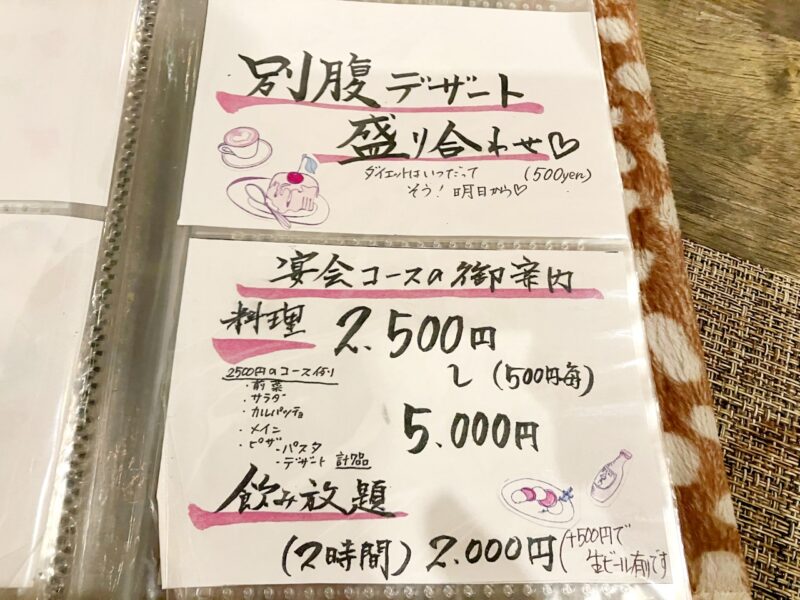 別腹デザート
盛り合わせ♡
ダイエットはいつだって (500yen)
そう！明日から♡
宴会コースの御案内
料理 2.500円
〜 (500円毎)
2500円のコース例
・前菜
・サラダ
・カルパッチョ
5.000円
・メイン
・ピザ
・パスタ
・デザート 計7品
飲み放題
(2時間) 2.000円 (+500円で
生ビール有りです